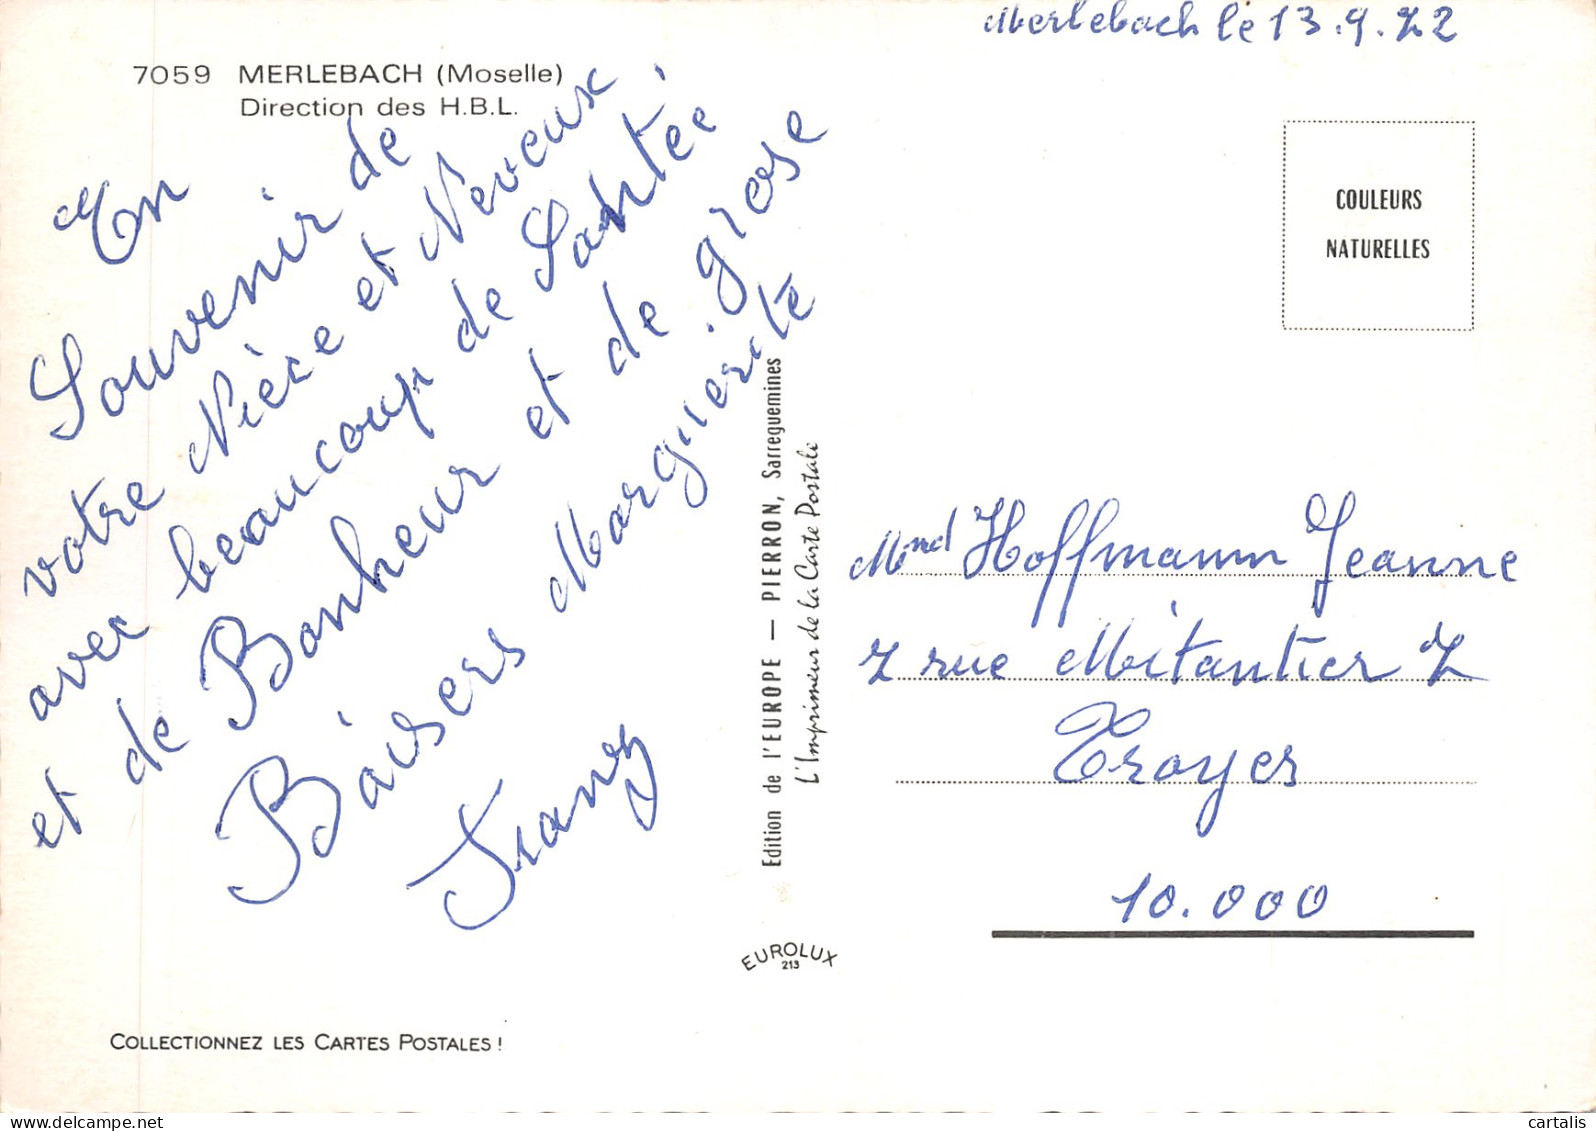 Merlebach le 13.9.72
7059 MERLEBACH (Moselle)
Direction des H.B.L.
En
Souvenir de
votre Nièce et Neveux
avec beaucoup de Santée
et de Bonheur et de grose
Baisers Marguerite
Franz
COULEURS
NATURELLES
Edition de l'EUROPE — PIERRON, Sarreguemines
L'Imprimeur de la Carte Postale
Mmd Hoffmann Jeanne
7 rue Mitantier 7
Troyes
10.000
EUROLUX
213
COLLECTIONNEZ LES CARTES POSTALES !
cartalis